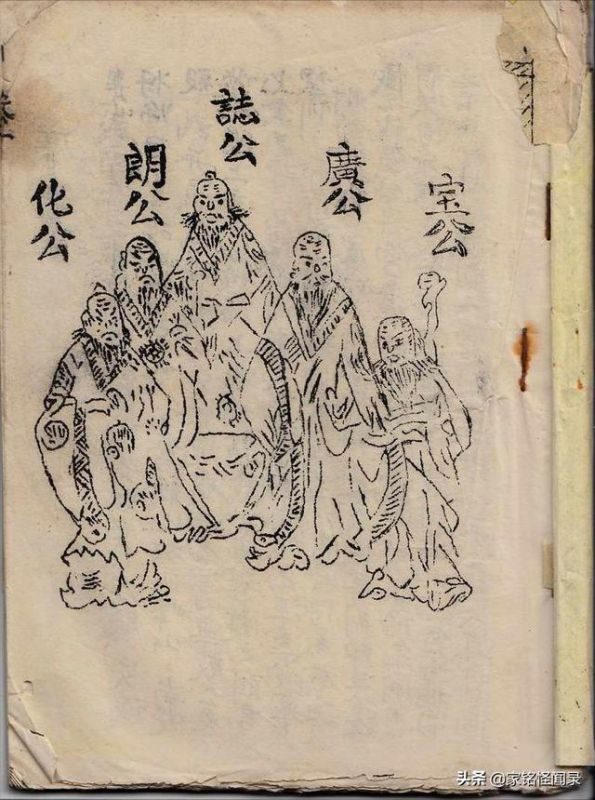 宝公
廣公
誌公
朗公
化公
头条 @家铭怪闻录